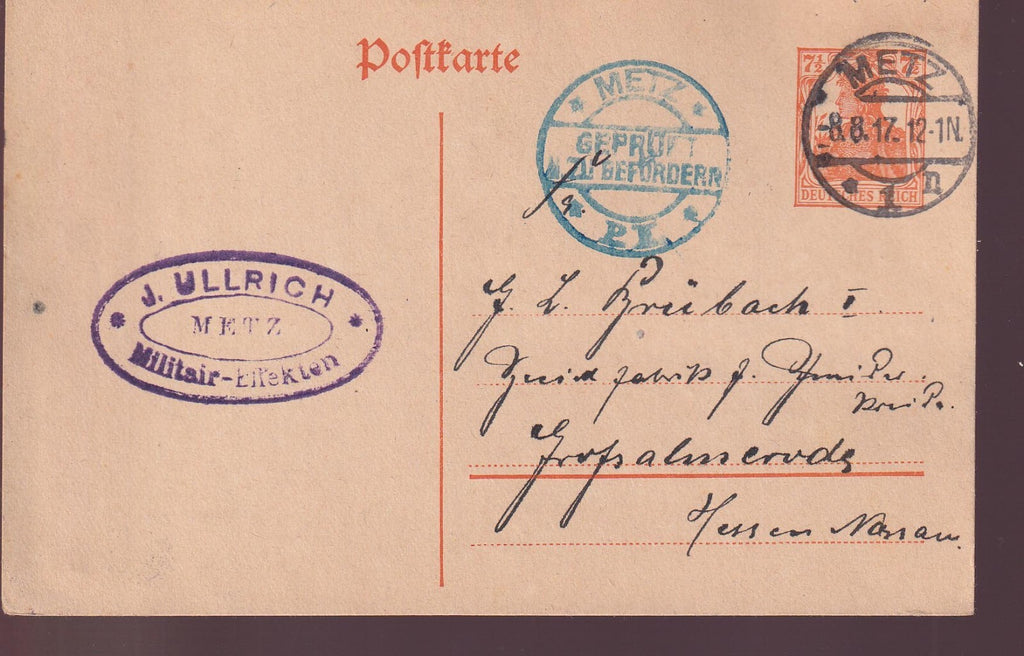 Postkarte
METZ
GEPRÜFT
U. ZU BEFÖRDERN
P.K.
7½ 7½
DEUTSCHES REICH
METZ
8.8.17. 12-1N.
1 n
J. ULLRICH
METZ
Militair-Effekten
G. L. Breübach I
fabrik f. Schneider
Kreide.
Großalmerode
Hessen Nassau.